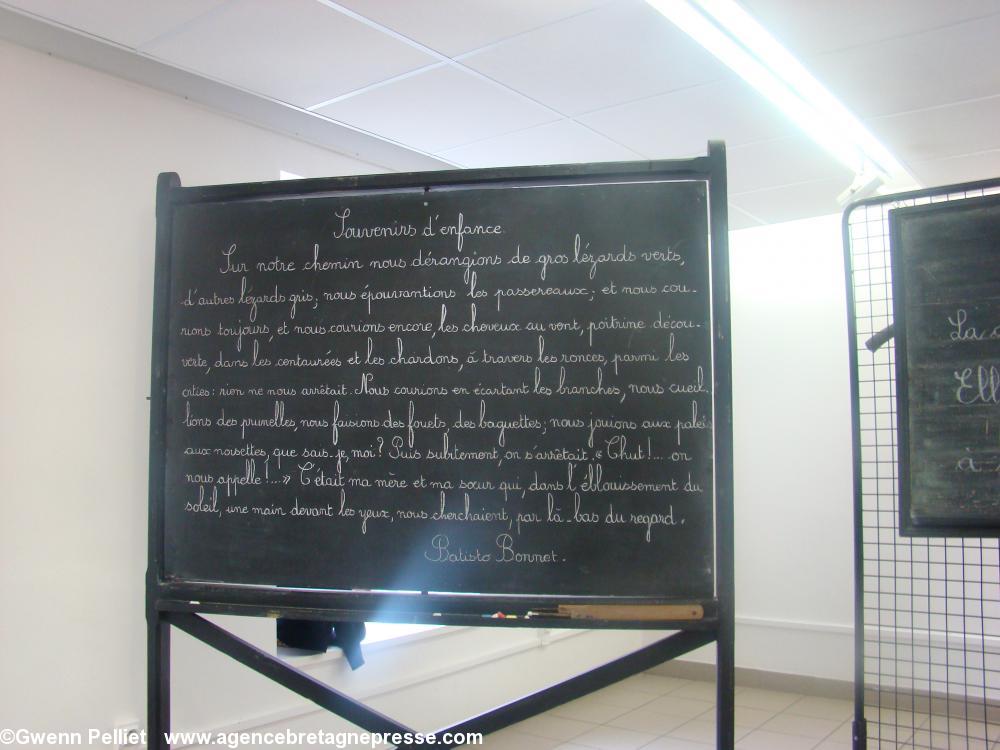 Souvenirs d'enfance.
Sur notre chemin nous dérangions de gros lézards verts,
d'autres lézards gris; nous épouvantions les passereaux; et nous cou-
rions toujours, et nous courions encore, les cheveux au vent, poitrine décou-
verte, dans les centaurées et les chardons, à travers les ronces, parmi les
orties: rien ne nous arrêtait. Nous courions en écartant les branches, nous cueil-
lions des prunelles, nous faisions des fouets, des baguettes; nous jouions aux palets
aux noisettes, que sais-je, moi? Puis subitement, on s'arrêtait. « Chut!... on
nous appelle!...» C'était ma mère et ma sœur qui, dans l'éblouissement du
soleil, une main devant les yeux, nous cherchaient, par là-bas du regard.
Batisto Bonnet.
La
Ell
à
©Gwenn Pelliet www.agencebretagnepresse.com